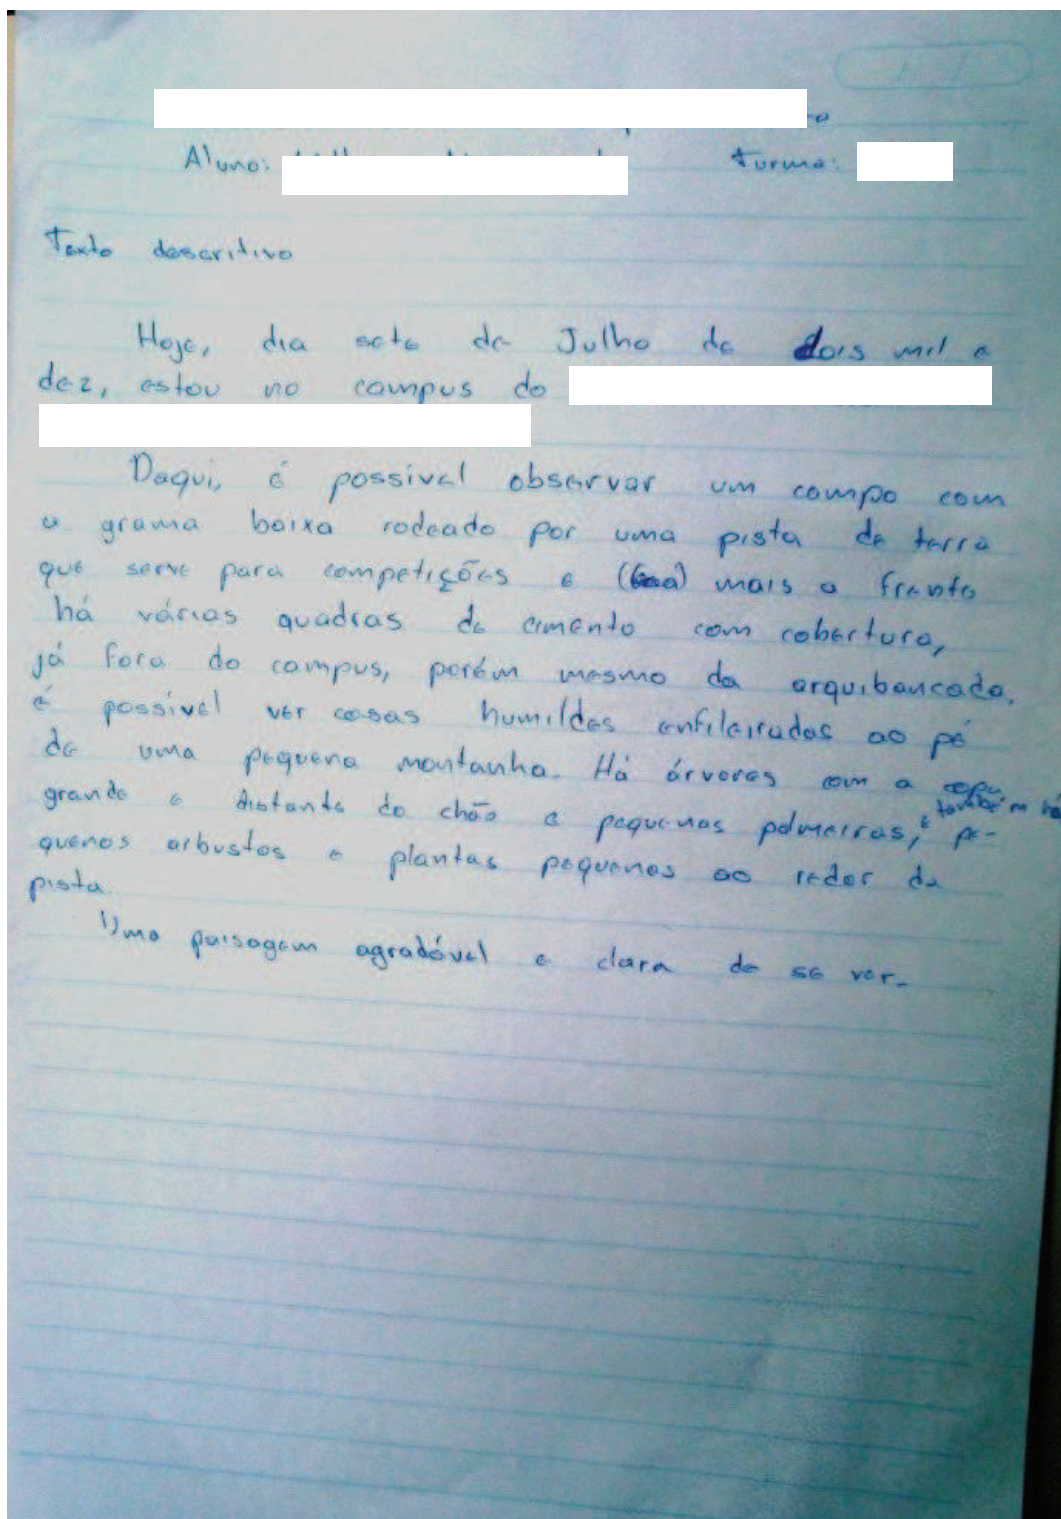 Aluno: Turma:
Texto descritivo
Hoje, dia sete de Julho de dois mil e
dez, estou no campus do
Daqui, é possível observar um campo com
a grama baixa rodeado por uma pista de terra
que serve para competições e mais a frente
há várias quadras de cimento com cobertura,
já fora do campus, porém mesmo da arquibancada,
é possível ver casas humildes enfileiradas ao pé
de uma pequena montanha. Há árvores com a copa
grande e distante do chão e pequenas palmeiras, e também há pe-
quenos arbustos e plantas pequenas ao redor da
pista
Uma paisagem agradável e clara de se ver.